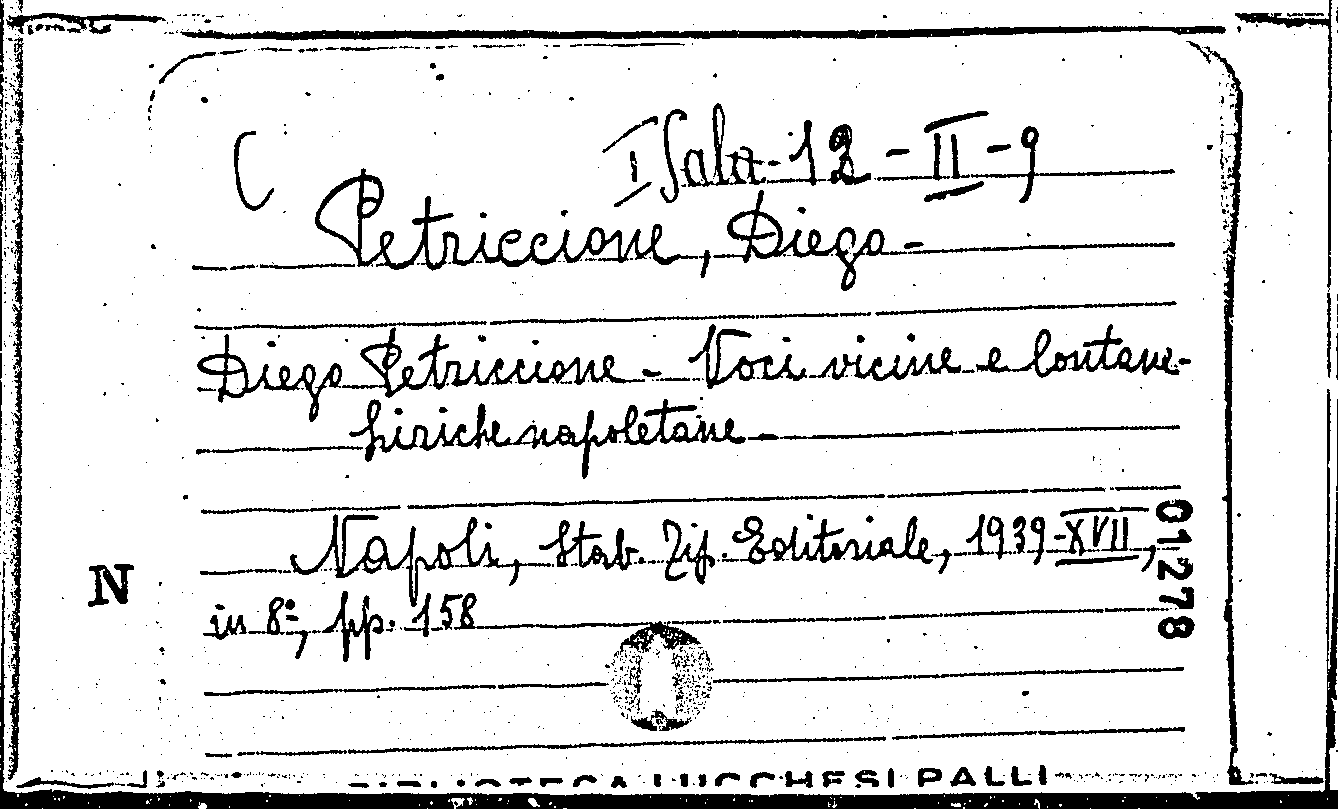 C
I Sala-12-II-9
Petriccione, Diego-
Diego Petriccione - Voci vicine e lontane-
Liriche napoletane-
Napoli, Stab. Tip. Editoriale, 1939-XVII,
01278
N
in 8º, pp. 158
BIBLIOTECA LUCCHESI PALLI